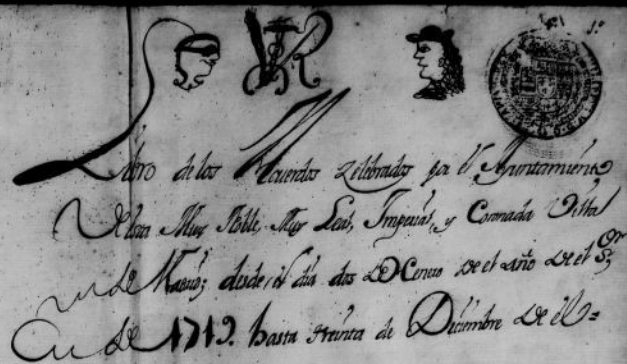 Libro de los Acuerdos Zelebrados por el Ayuntamiento
De esta Muy Noble, Muy Leal, Imperial, y Coronada Villa
de Madrid; desde el dia dos de Enero de el año de el Sr
de 1719. hasta treinta de Diciembre de él=